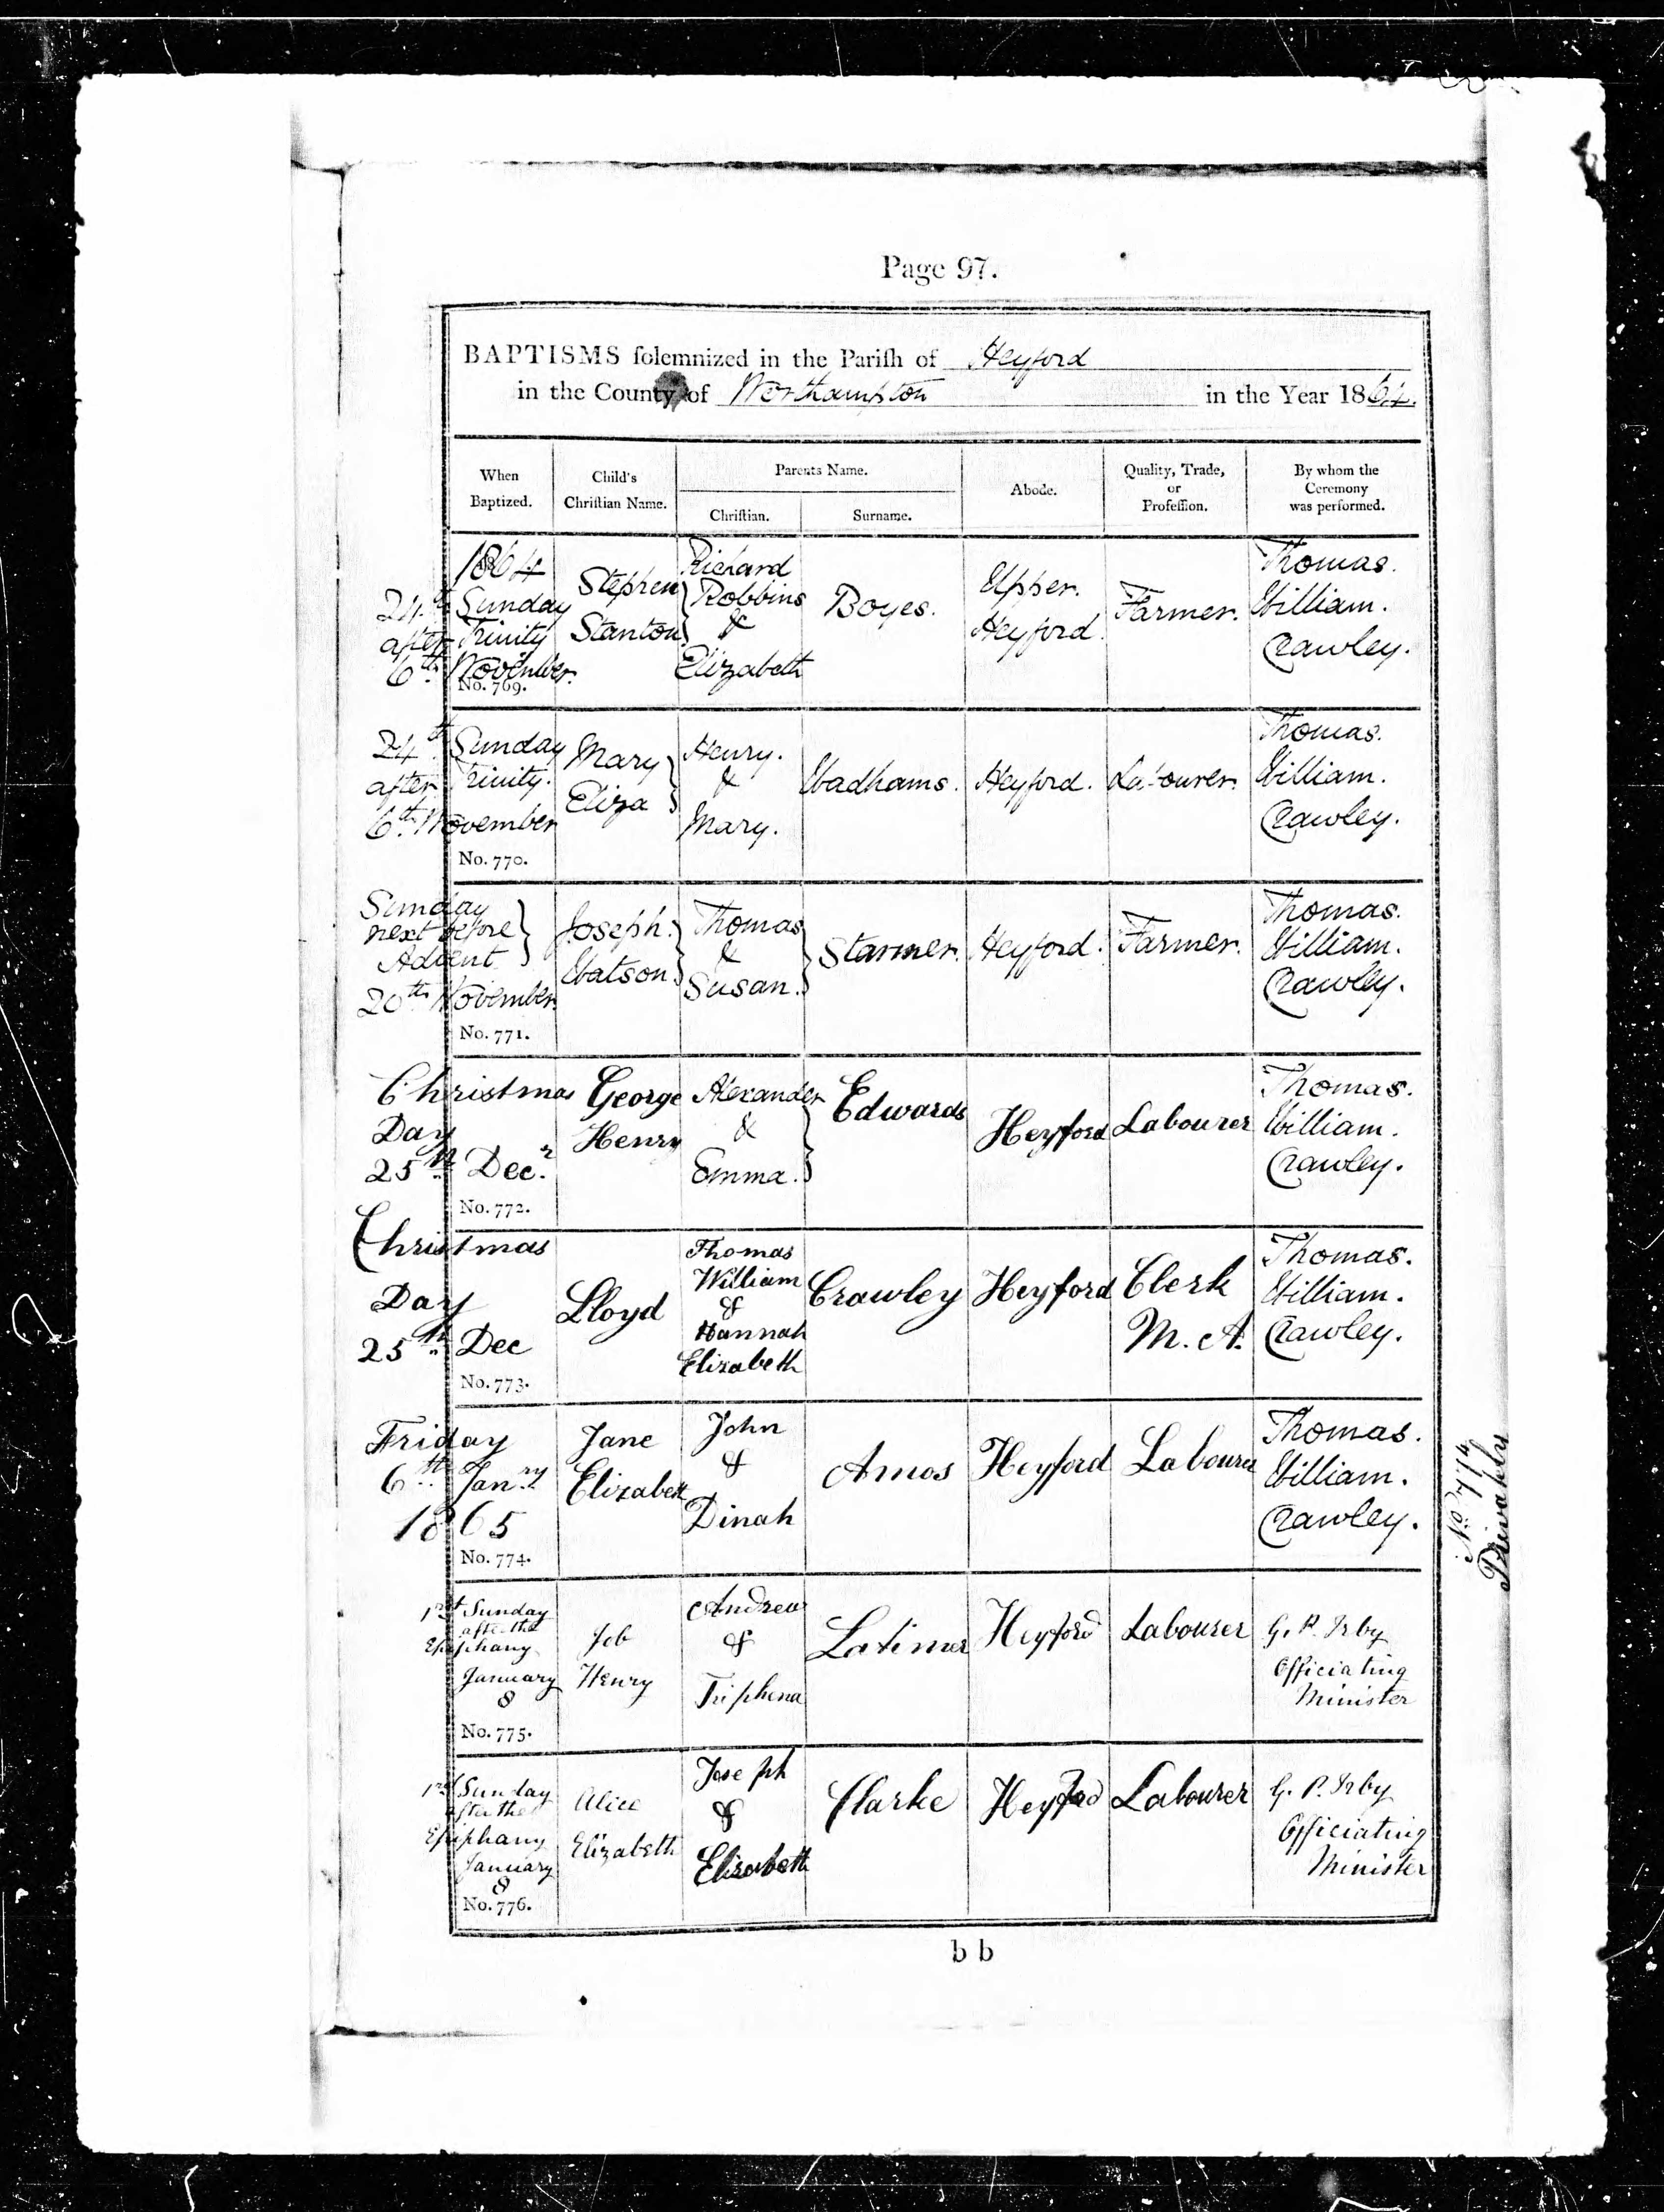 Page 97.
BAPTISMS ſolemnized in the Pariſh of Heyford
in the County of Northampton in the Year 1864.
When Baptized.
Child's Chriſtian Name.
Parents Name.
Chriſtian.
Surname.
Abode.
Quality, Trade, or Profeſſion.
By whom the Ceremony was performed.
1864
24th Sunday
after Trinity
6th November.
No. 769.
Stephen
Stanton
Richard
Robbins
&
Elizabeth
Boyes.
Upper.
Heyford.
Farmer.
Thomas.
William.
Crawley.
24th Sunday
after Trinity.
6th November
No. 770.
Mary
Eliza
Henry.
&
Mary.
Wadhams.
Heyford.
Labourer.
Thomas.
William.
Crawley.
Sunday
next before
Advent
20th November
No. 771.
Joseph.
Watson.
Thomas
&
Susan.
Starmer.
Heyford.
Farmer.
Thomas.
William.
Crawley.
Christmas
Day
25th Decr.
No. 772.
George
Henry
Alexander
&
Emma.
Edwards
Heyford
Labourer
Thomas.
William.
Crawley.
Christmas
Day
25th Dec
No. 773.
Lloyd
Thomas
William
&
Hannah
Elizabeth
Crawley
Heyford
Clerk
M. A.
Thomas.
William.
Crawley.
Friday
6th Janry
1865
No. 774.
Jane
Elizabeth
John
&
Dinah
Amos
Heyford
Labourer
Thomas.
William.
Crawley.
No. 774
Privately
1rst Sunday
after the
Epiphany
January
8
No. 775.
Job
Henry
Andrew
&
Triphena
Latimer
Heyford
Labourer
G. P. Irby
Officiating
Minister
1rst Sunday
after the
Epiphany
January
8
No. 776.
Alice
Elizabeth
Joseph
&
Elizabeth
Clarke
Heyford
Labourer
G. P. Irby
Officiating
Minister
b b